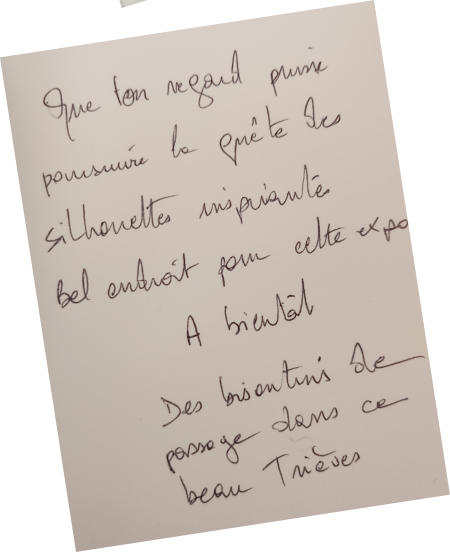 Que ton regard puisse
poursuivre la quête des
silhouettes inspirantes
Bel endroit pour cette expo
A bientôt
Des bisontins de
passage dans ce
beau Trièves